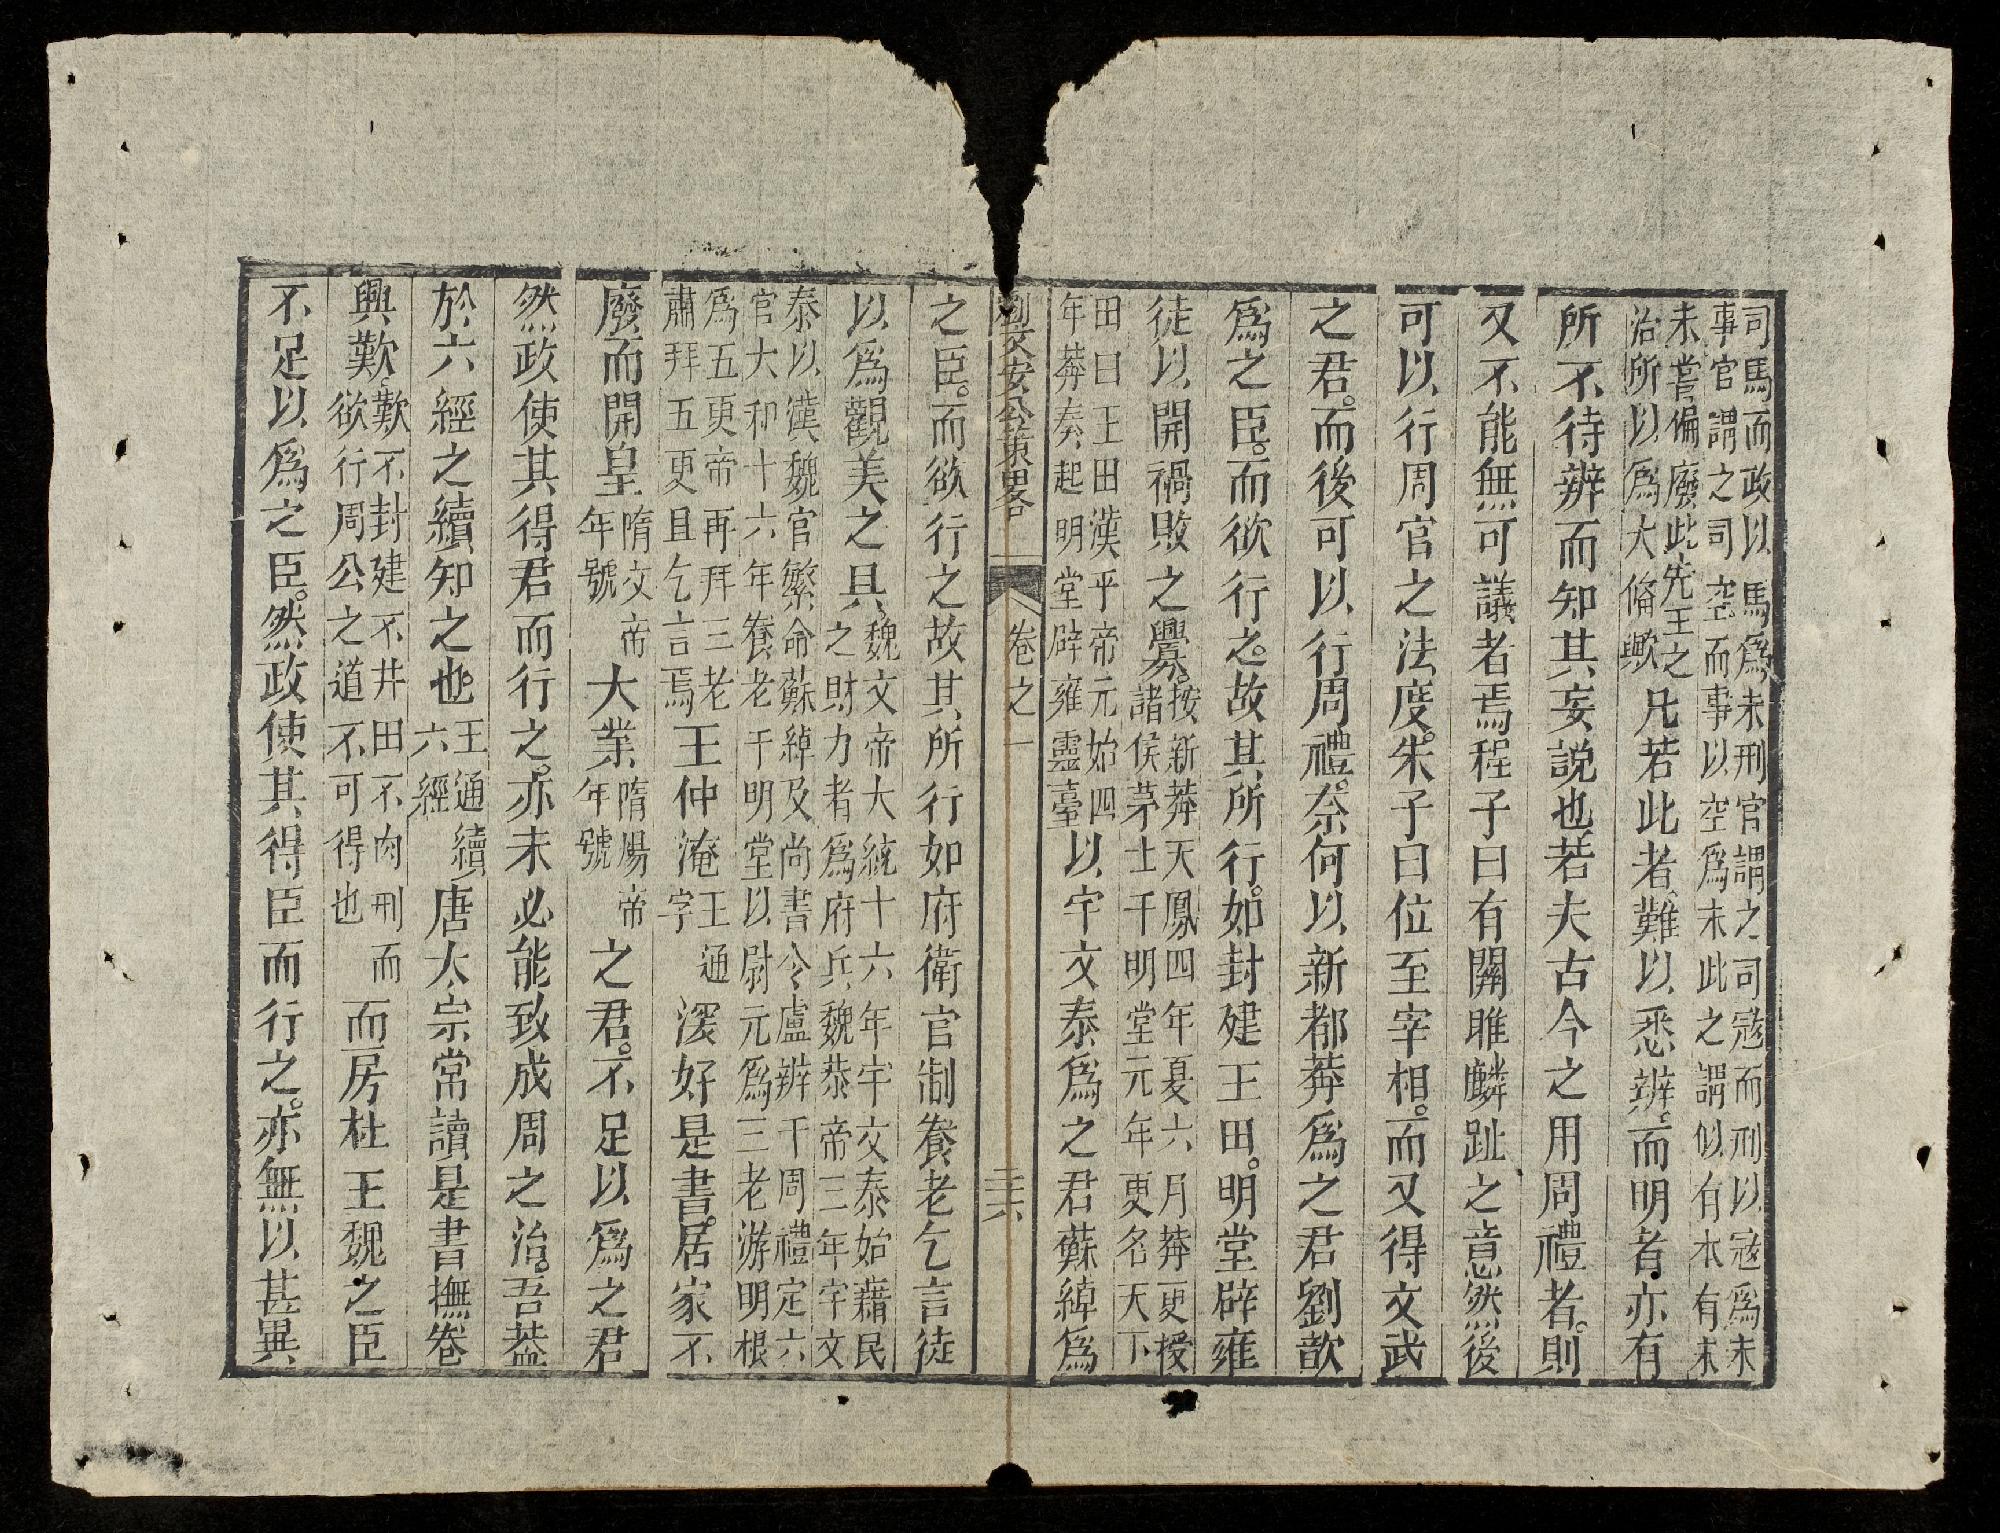 司馬而政以馬爲未刑官謂之司寇而刑以寇爲末
事官謂之司空而事以空爲末此之謂似有本有末
未嘗偏廢此先王之
治所以爲大備歟凡若此者難以悉辨而明者亦有
所不待辨而知其妄説也若夫古今之用周禮者則
又不能無可議者焉程子曰有關雎麟趾之意然後
可以行周官之法度朱子曰位至宰相而又得文武
之君而後可以行周禮奈何以新都莽爲之君劉歆
爲之臣而欲行之故其所行如封建王田明堂辟雍
徒以開禍敗之釁按新莽天鳳四年夏六月莽更授
諸侯茅土千明堂元年更名天下
田曰王田漢平帝元始四
年莽奏起明堂辟雍靈臺以宇文泰爲之君蘇綽爲
劉文安公策畧 卷之一 三六
之臣而欲行之故其所行如府衛官制養老乞言徒
以爲觀美之具魏文帝大統十六年宇文泰始藉民
之財力者爲府兵魏恭帝三年宇文
泰以漢魏官繁命蘇綽及尚書令盧辨干周禮定六
官大和十六年養老于明堂以尉元爲三老游明根
爲五更帝再拜三老
肅拜五更且乞言焉王仲淹王通
字深好是書居家不
廢而開皇隋文帝
年號大業隋煬帝
年號之君不足以爲之君
然政使其得君而行之亦未必能致成周之治吾葢
於六經之續知之也王通續
六經唐太宗常讀是書撫卷
興歎歎不封建不井田不肉刑而
欲行周公之道不可得也而房杜王魏之臣
不足以爲之臣然政使其得臣而行之亦無以甚異